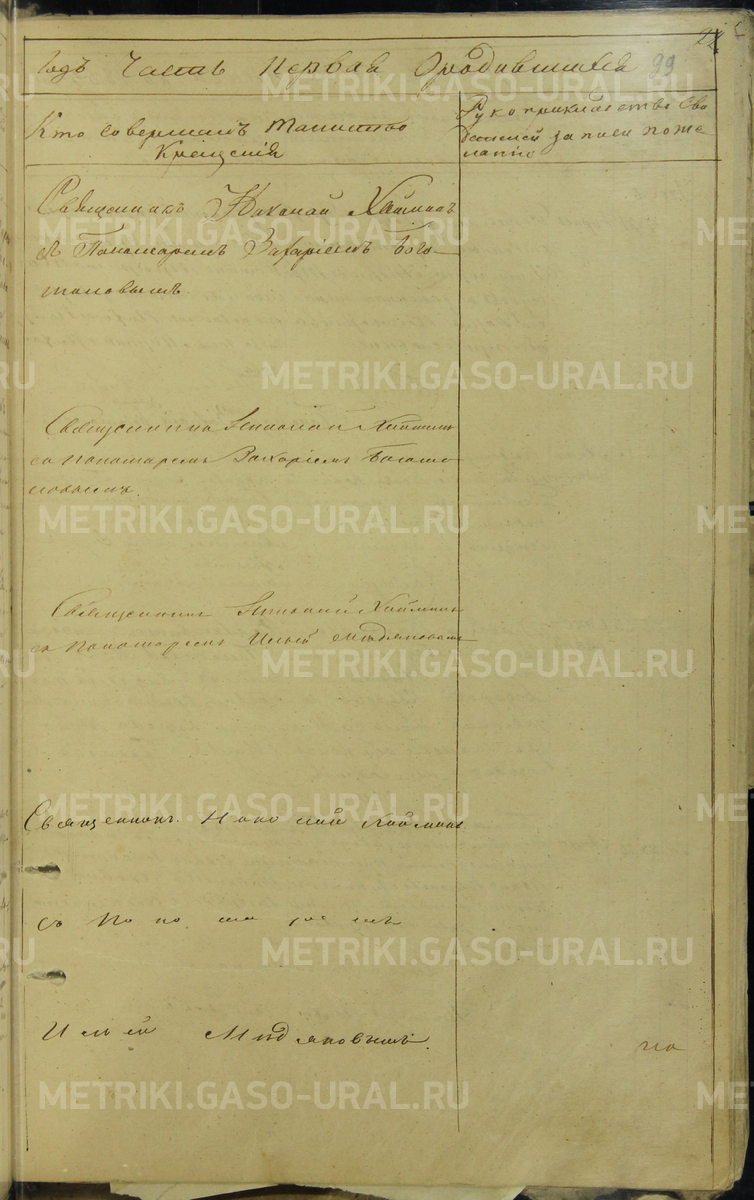 22
Годъ Часть Первая О родившихся 99
Кто совершалъ Таинство
Крещенія
Рукоприкладство сви
детелей записи по же
ланію
Священникъ Николай Хайминъ
съ Пономаремъ Захаріемъ Бога
тыловымъ
Священникъ Николай
съ пономаремъ Захаріемъ
Священникъ Николай Хайминъ
съ пономаремъ Ильей
Священникъ Николай Хайминъ
съ По но ма ре мъ
Ильей
на
METRIKI.GASO-URAL.RU